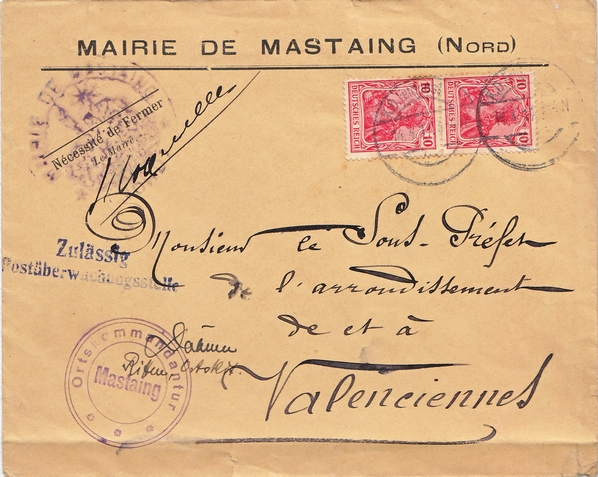 MAIRIE DE MASTAING (NORD)
MAIRIE DE MASTAING
Nécessité de Fermer
Le Maire
10 10
DEUTSCHES REICH
10 10
DEUTSCHES REICH
Monsieur le Sous-Préfet
de l'arrondissement
de et à
Valenciennes
Zulässig
Postüberwachungsstelle
Ortskommandantur
Mastaing